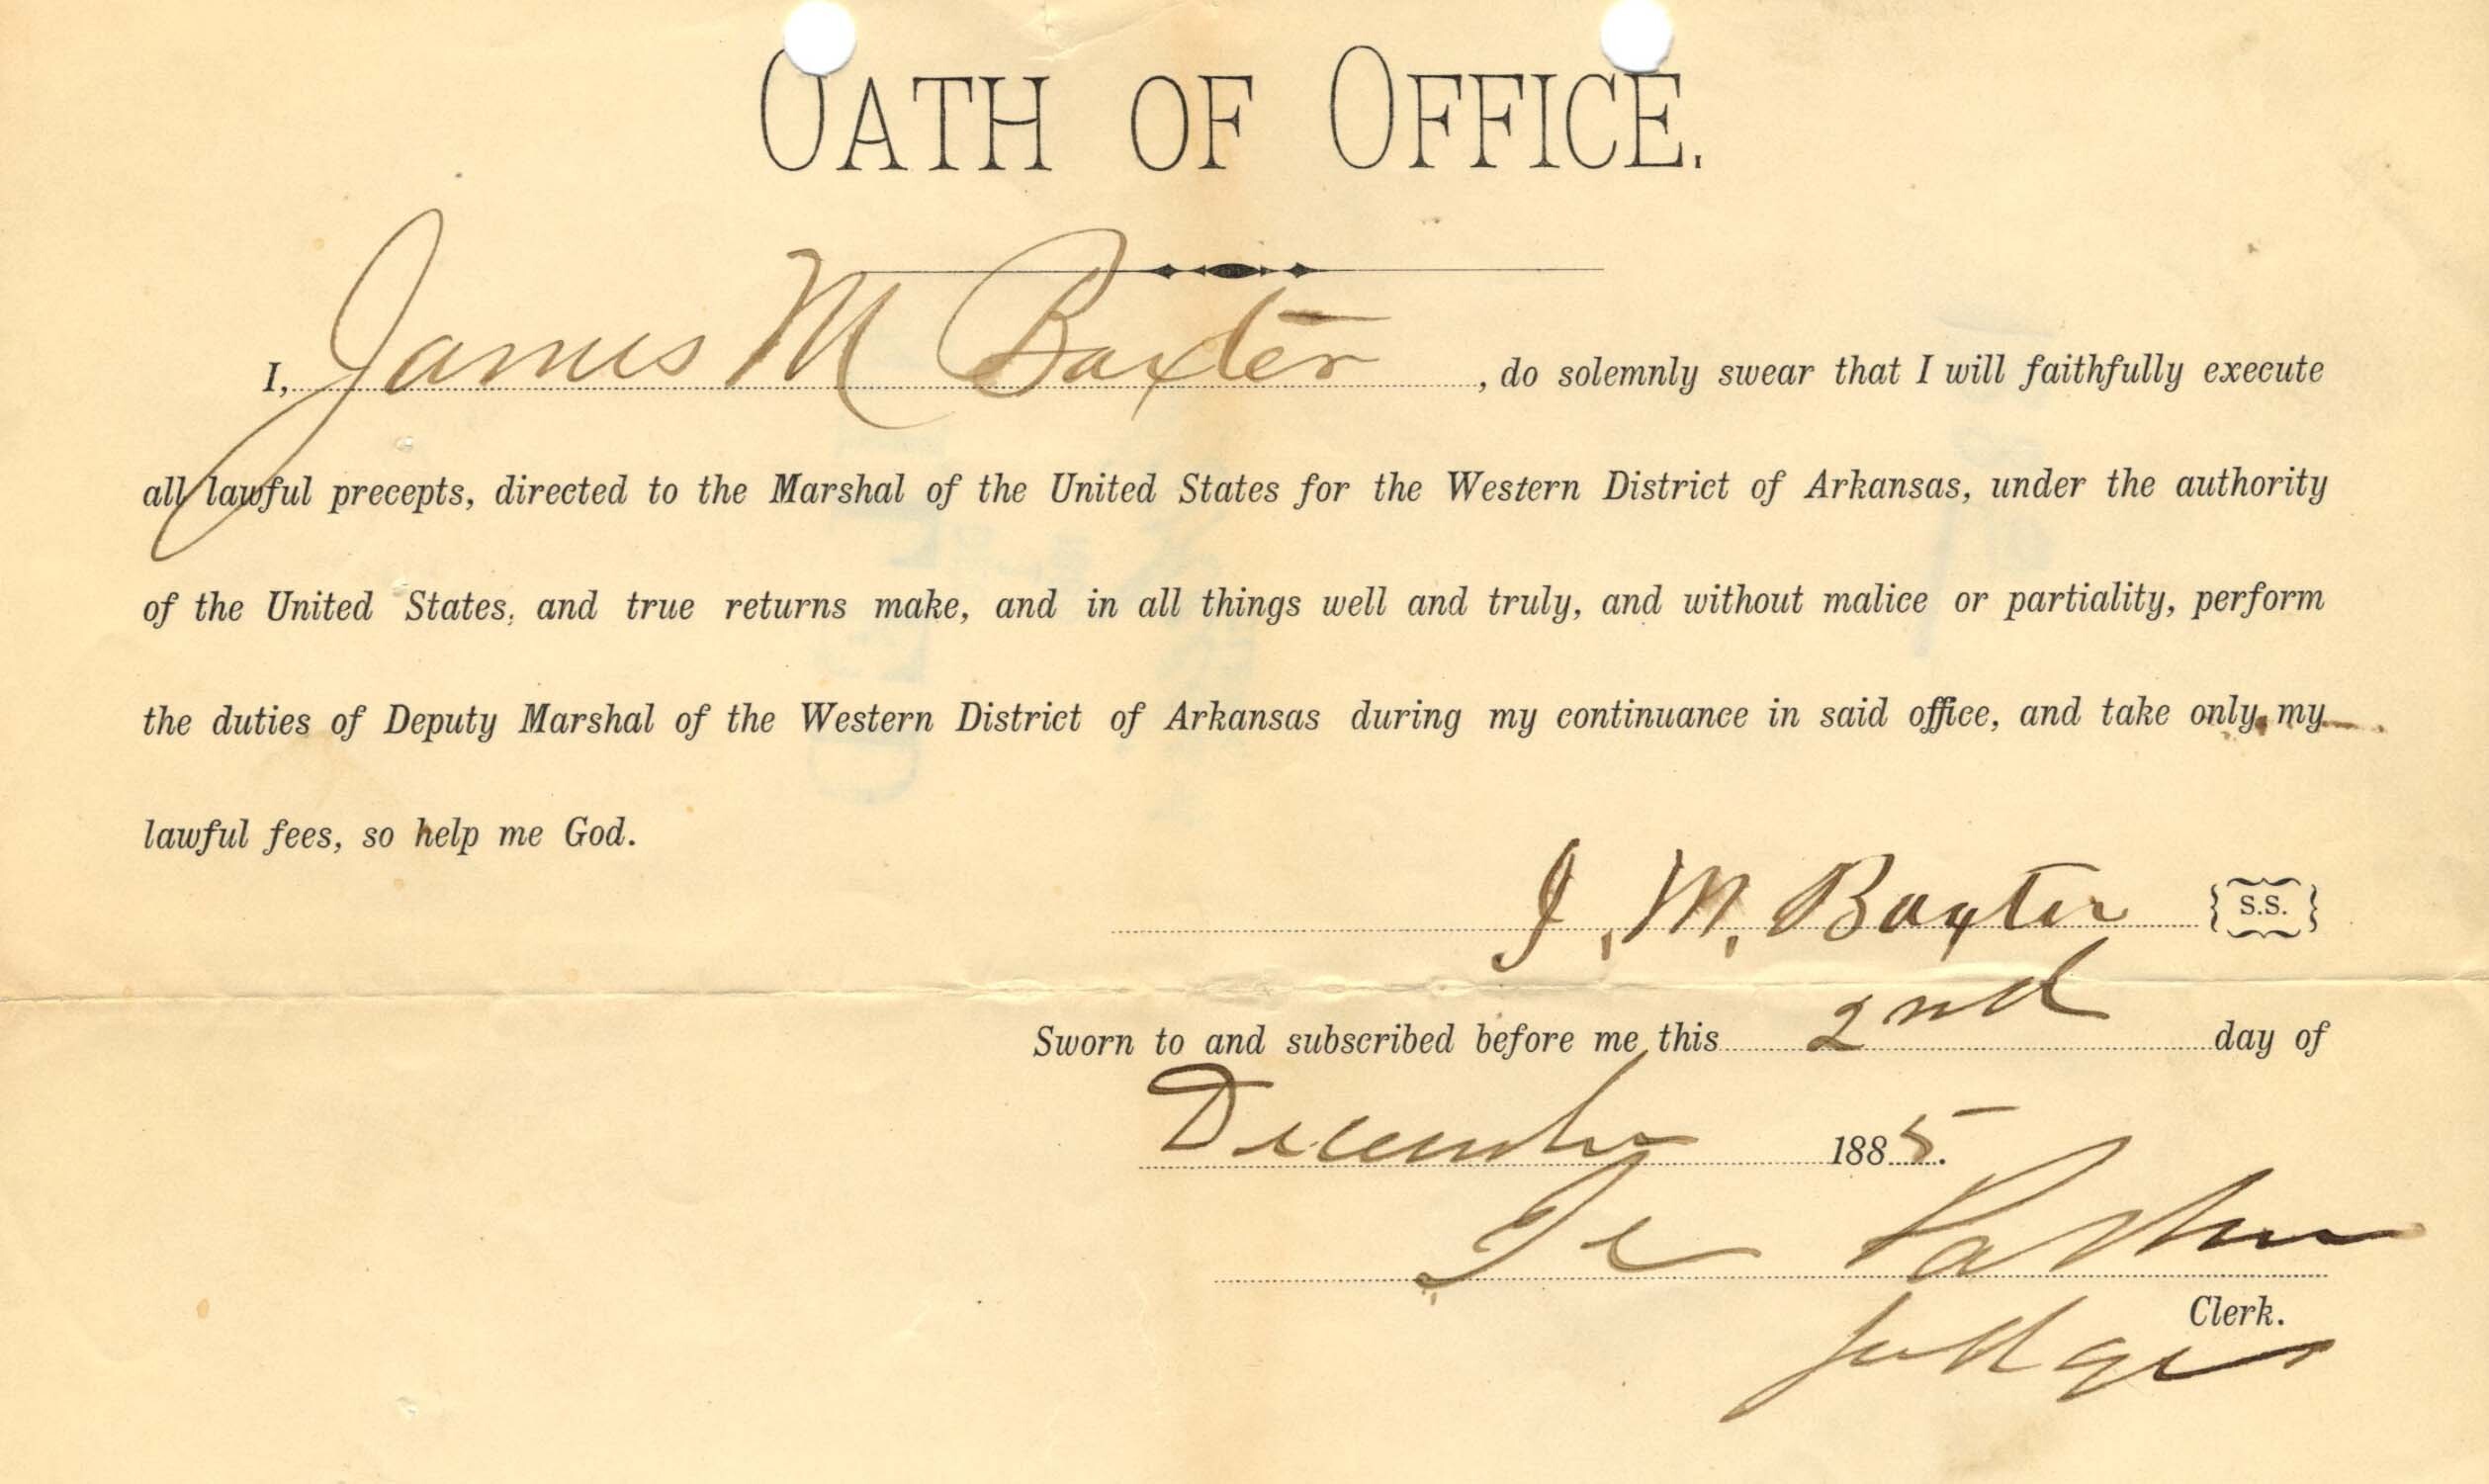 OATH OF OFFICE.
I, James M Baxter, do solemnly swear that I will faithfully execute
all lawful precepts, directed to the Marshal of the United States for the Western District of Arkansas, under the authority
of the United States, and true returns make, and in all things well and truly, and without malice or partiality, perform
the duties of Deputy Marshal of the Western District of Arkansas during my continuance in said office, and take only my
lawful fees, so help me God.
J. M. Baxter {S.S.}
Sworn to and subscribed before me this 2nd day of
December 1885.
I C Parker
Clerk.
Judge